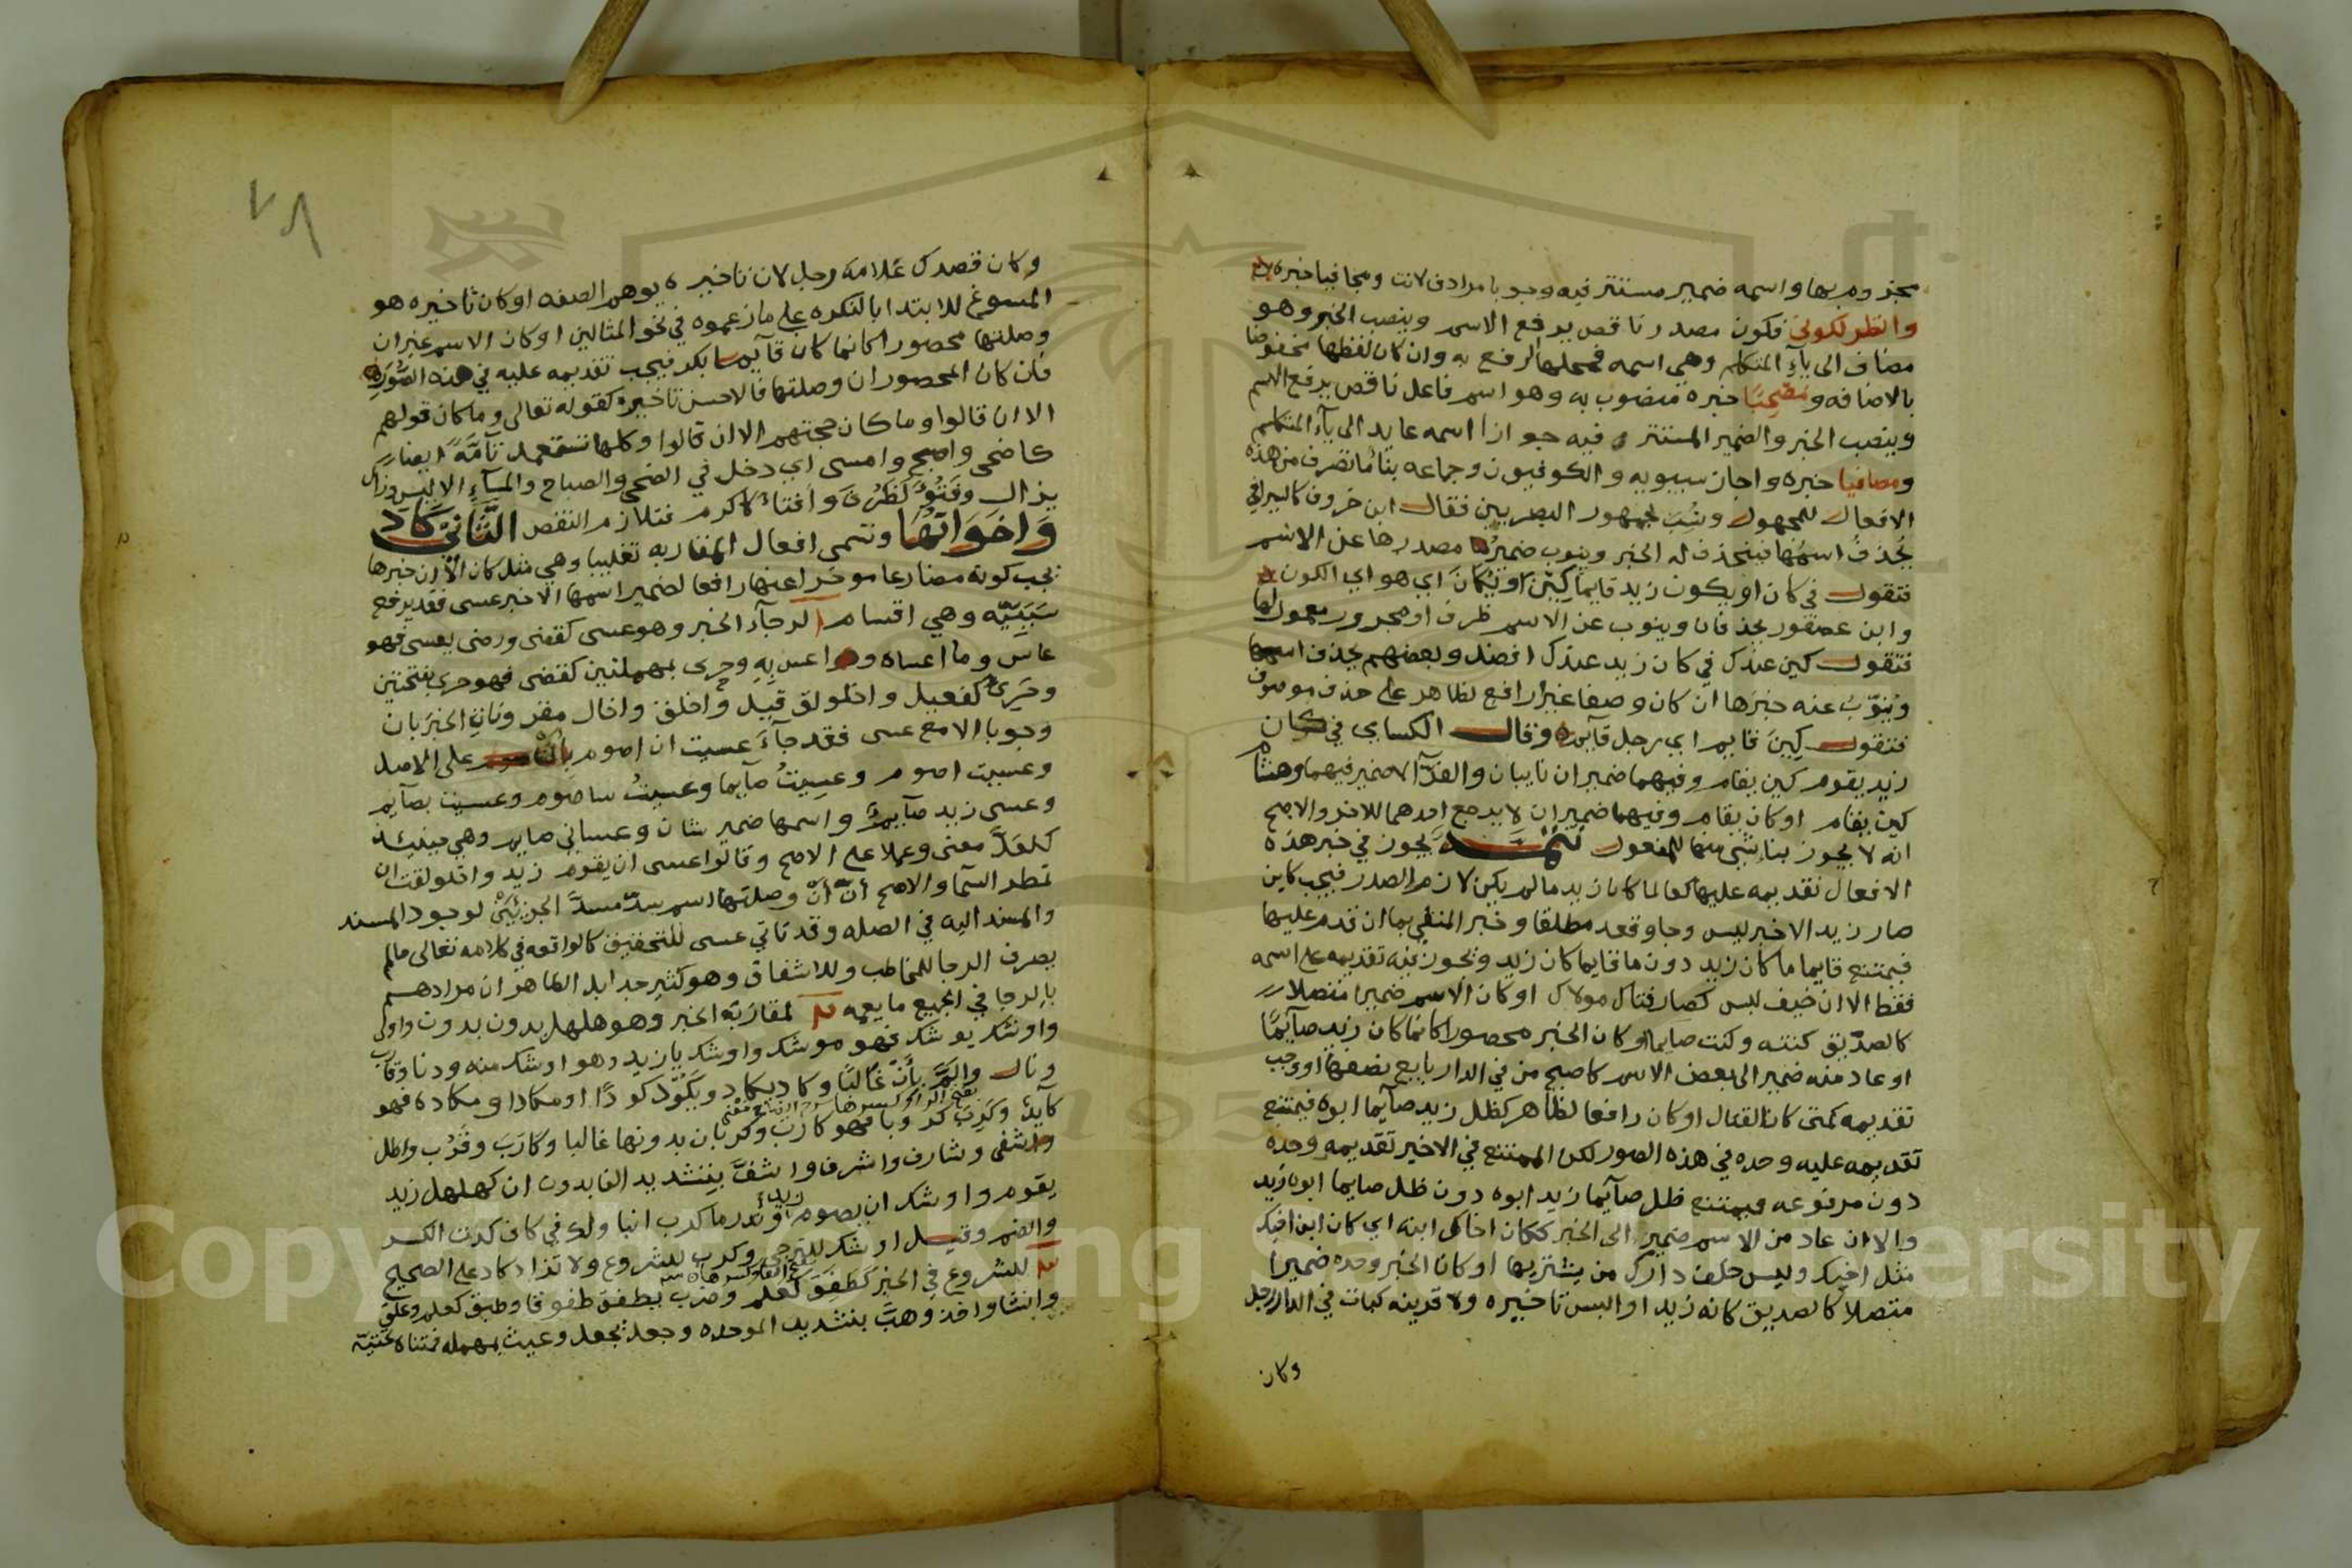 مجزوم بها واسمه ضمير مستتر فيه وجوبا مرادف لانت ومجافيا خبره
وانظر لكوني فكون مصدر ناقص يرفع الاسم وينصب الخبر وهو
مضاف الى يآء المتكلم وهي اسمه فمحلها الرفع به وان كان لفظها مخفوضا
بالاضافه و خبره منصوب به وهو اسم فاعل ناقص يرفع الاسم
وينصب الخبر والضمير المستتر فيه جوازا اسمه عايد الى يآء المتكلم
ومصافيا خبره واجاز سيبويه والكوفيون وجماعه بنا ما تصرف من هذه
الافعال للمجهول ونسب لجمهور البصريين فقال ابن خروف كالسيرافي
يحذف اسمها فينحذف له الخبر وينوب ضمير مصدرها عن الاسم
فتقول في كان او يكون زيد قايما كين او يكان اي هو اي الكون
وابن عصفور يحذفان وينوب عن الاسم ظرف او مجرور معمول لها
فتقول كين عندك في كان زيد عندك افضل وبعضهم يحذف اسمها
وينوب عنه خبرها ان كان وصفا غير رافع لظاهر على حذف موصوف
فتقول كين قايم اي رجل قايم وقال الكساي في كان
زيد يقوم كين يقام وفيهما ضميران نايبان والفرآ الاضمير فيهما وهشام
كين يقام او كان يقام وفيهما ضميران لا يرجع احدهما للاخر والاصح
انه لا يجوز بنا شي منها للمفعول تتمه يجوز في خبر هذه
الافعال تقديمه عليها كعالما كان زيد مالم يكن لازم الصدر فيجب كاين
صار زيد الاخبر ليس وجا وقعد مطلقا وخبر المنفي بما ان قدم عليها
فيمتنع قايما ما كان زيد دون ما قايما كان زيد ويجوز فيه تقديمه على اسمه
فقط الا ان خيف لبس كصار فتاك مولاك او كان الاسم ضميرا متصلا
كالصديق كنته وكنت صايما او كان الخبر محصورا كانما كان زيد صآيما
او عاد منه ضمير الى بعض الاسم كاصبح من في الدار بايع نصفها او وجب
تقديمه كمتى كان القتال او كان رافعا لظاهر كظل زيد صآيما ابوه فيمتنع
تقديمه عليه وحده في هذه الصور لكن الممتنع في الاخير تقديمه وحده
دون مرفوعه فيمتنع ظل صآيما زيد ابوه دون ظل صايما ابوه زيد
والا ان عاد من الاسم ضمير الى الخبر ككان اخاك ابنه اي كان ابن اخيك
مثل اخيك وليس خلف دارك من يشتريها او كان الخبر وحده ضميرا
متصلا كالصديق كانه زيد او البس تاخيره ولا قرينه كبات في الدار رجل
وكان
٧٨
وكان قصدك غلامه رجل لان تاخيره يوهم الصفه او كان تاخيره هو
المسوغ للابتدا بالنكره على ما زعموه في نحو المثالين او كان الاسم غير ان
وصلتها محصورا كانما كان قآيما بكر فيجب تقديمه عليه في هذه الصوره
فان كان المحصور ان وصلتها فالاحسن تاخيره كقوله تعالى وما كان قولهم
الا ان قالوا وما كان حجتهم الا ان قالوا وكلها تستعمل تآمة ايضا
كاضحى واصبح وامسى اي دخل في الضحى والصباح والمسآء الا ليس وزال
يزال وفتؤ كظرف وافتا كاكرم فتلازم النقص الثاني كاد
واخواتها وتسمى افعال المقاربه تغليبا وهي مثل كان الا ان خبرها
يجب كونه مضارعا موخرا عنها رافعا لضمير اسمها الا خبر عسى فقد يرفع
سببيه وهي اقسام لرجآء الخبر وهو عسى كقضى ورضى يعسى فهو
عاس وما اعساه واعس به وحرى بمهملتين كقضى فهو حرى بفتحتين
وحري كفعيل واخلولق قيل واخلق واخال مقرونات الخبر بان
وجوبا الا مع عسى فقد جآء عسيت ان اصوم على الاصل
وعسيت اصوم وعسيت صآيما وعسيت ساصوم وعسيت بصآيم
وعسى زيد صآيم واسمها ضمير شان وعساني صايم وهي حينئذ
كلعل معنى وعملا على الاصح وقالوا عسى ان يقوم زيد واخلولقت ان
تمطر السمآ والاصح أن أن وصلتها اسم سد مسد الجزئين لوجود المسند
والمسند اليه في الصله وقد تاتي عسى للتحقيق كالواقعه في كلامه تعالى مالم
يصرف الرجا للمخاطب وللاشفاق وهو كثير جدا بل الظاهر ان مرادهم
بالرجا في الجميع ما يعمه لمقاربة الخبر وهو هلهل بدون بدون واولى
واوشك يوشك فهو موشك واوشك يا زيد وهو اوشك منه ودنا وقارب
ونال والم بأن غالبا وكاد يكاد ويكود كودا او مكادا ومكاده فهو
كآيد وكرب كروبا فهو كارب وكربان بدونها غالبا وكارب وقرب واطل
واشفى وشارف واشرف واشف بتشديد الفا بدون ان كهلهل زيد
يقوم واوشك ان يصوم زيد وندر ما كرب انبا ولك في كاف كدت الكسر
والضم وقيل اوشك للترجي وكرب للشروع ولا تزاد كاد على الصحيح
للشروع في الخبر كطفق كعلم وضرب يطفق طفوقا وطبق كعلم وعلق
وانشا واخذ وهب بتشديد الموحده وجعل يجعل وعيث بمهمله فمثناه تحتية
Copyright © King Saud University